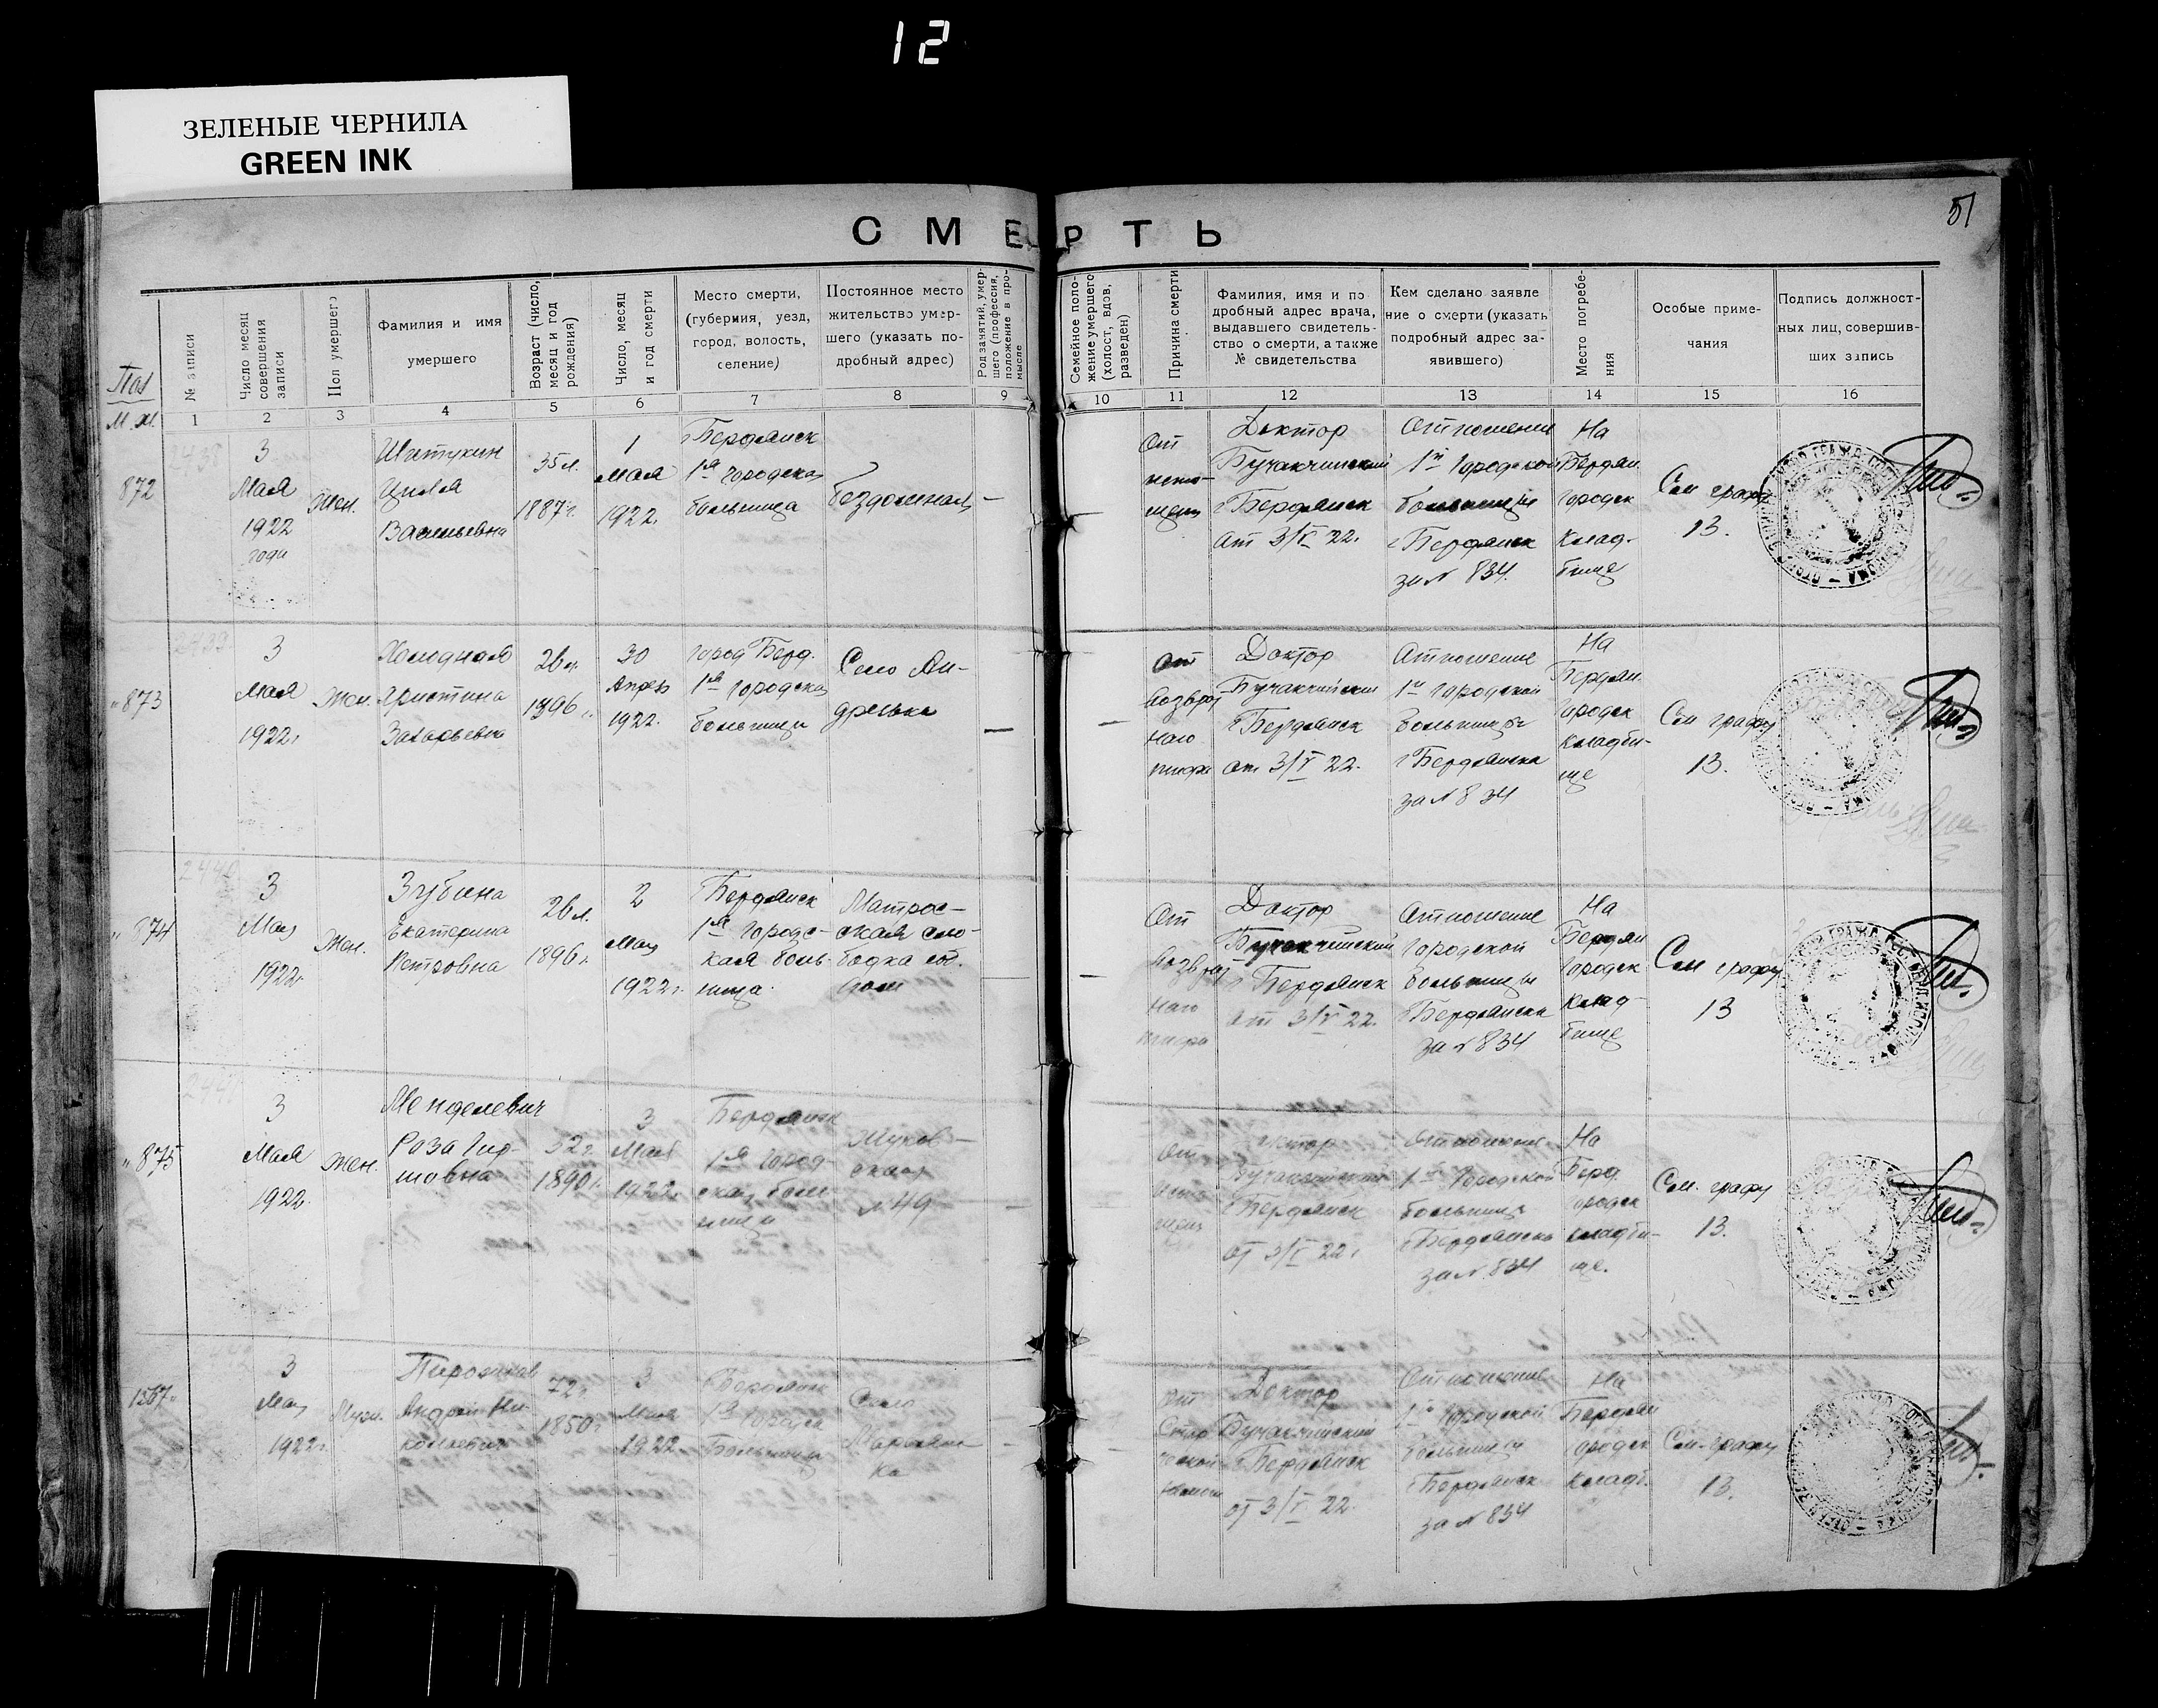 12
ЗЕЛЕНЫЕ ЧЕРНИЛА
GREEN INK
51
СМЕРТЬ
Пол
М. Ж.
№ записи
Число месяц совершения записи
Пол умершего
Фамилия и имя умершего
Возраст (число, месяц и год рождения)
Число, месяц и год смерти
Место смерти, (губерния, уезд, город, волость, селение)
Постоянное место жительство умершего (указать подробный адрес)
Род занятий, умершего (профессия, положение в промысле
Семейное положение умершего (холост, вдов, разведен)
Причина смерти
Фамилия, имя и подробный адрес врача, выдавшего свидетельство о смерти, а также № свидетельства
Кем сделано заявление о смерти (указать подробный адрес заявившего)
Место погребения
Особые примечания
Подпись должностных лиц, совершивших запись
1 2 3 4 5 6 7 8 9 10 11 12 13 14 15 16
872
2438
3
Мая
1922
года
Жен.
Циля
Васильевна
35 л.
1887 г.
1
Мая
1922.
г Бердянск
1я городская
больница
бездомная
—
От
исто-
щен
Доктор
Бучакчийский
г Бердянск
от 3/V 22.
Отношения
1й городской
больницы
г Бердянска
за № 834.
На
Бердян
городск
клад-
бище
См графу
13.
873
2439
3
Мая
1922 г
Жен.
Холодная
Христина
Захарьевна
26 л.
1896 г.
30
Апрель
1922.
город Берд.
1я городская
больница
Село Ан-
дреевка
—
От
возврат
ного
тифа
Доктор
Бучакчийский
г Бердянск
от 3/V 22.
Отношение
1й городской
больницы
г Бердянска
за № 834
На
Бердян.
городск
кладби-
ще
См графу
13.
874
2440
3
Мая
1922 г.
Жен.
Зубина
Екатерина
Петровна
26 л.
1896 г.
2
Мая
1922 г.
г Бердянск
1я городс-
кая боль-
ница.
Матрос-
ская сло-
бодка
дом
—
От
возврат
ного
тифа
Доктор
Бучакчийский
г Бердянск
от 3/V 22.
Отношение
городской
больницы
г Бердянска
за № 834
На
Бердян
городск
клад-
бище
См графу
13
875
3
Мая
1922.
Жен.
Менделевич
Роза Гир-
шовна
32 г.
1890 г.
3
Мая
1922 г
Бердянск
1я город-
ская боль
ница
Жуков-
ская
№ 49
—
От
исто
щен
Доктор
Бучакчийский
г Бердянск
от 3/V 22 г
Отношение
1й городской
больницы
г Бердянска
за № 834
На
Берд.
городск
кладби-
ще.
См. графу
13.
1367
3
Мая
1922 г.
Муж.
Андрей Ни-
колаевич
72 г.
1850 г
3
Мая
1922
г Бердянск
1я городск
больница
Село
—
От
Стар
ческой
Доктор
Бучакчийский
г Бердянск
от 3/V 22.
Отношение
1й городской
больницы
г Бердянск
за № 834
На
Бердян
городск
кладб.
См. графу
13.